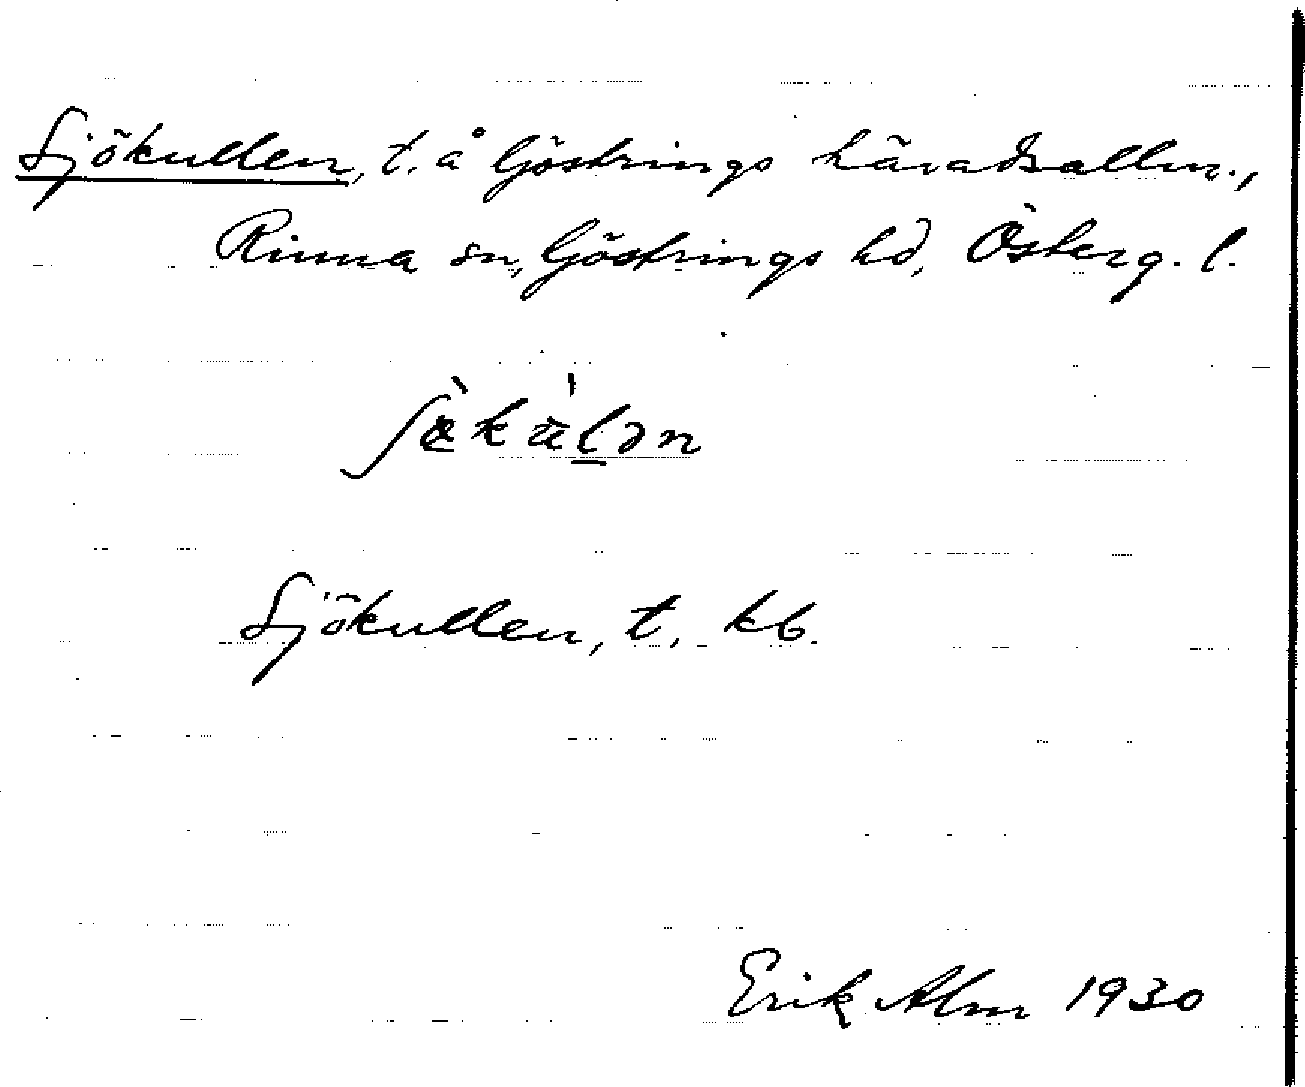 Sjökullen, t. å Göstrings häradsallm.,
Rinna sn, Göstrings hd, Österg. l.
Sjökullen, t. kb.
Erik Alm 1930